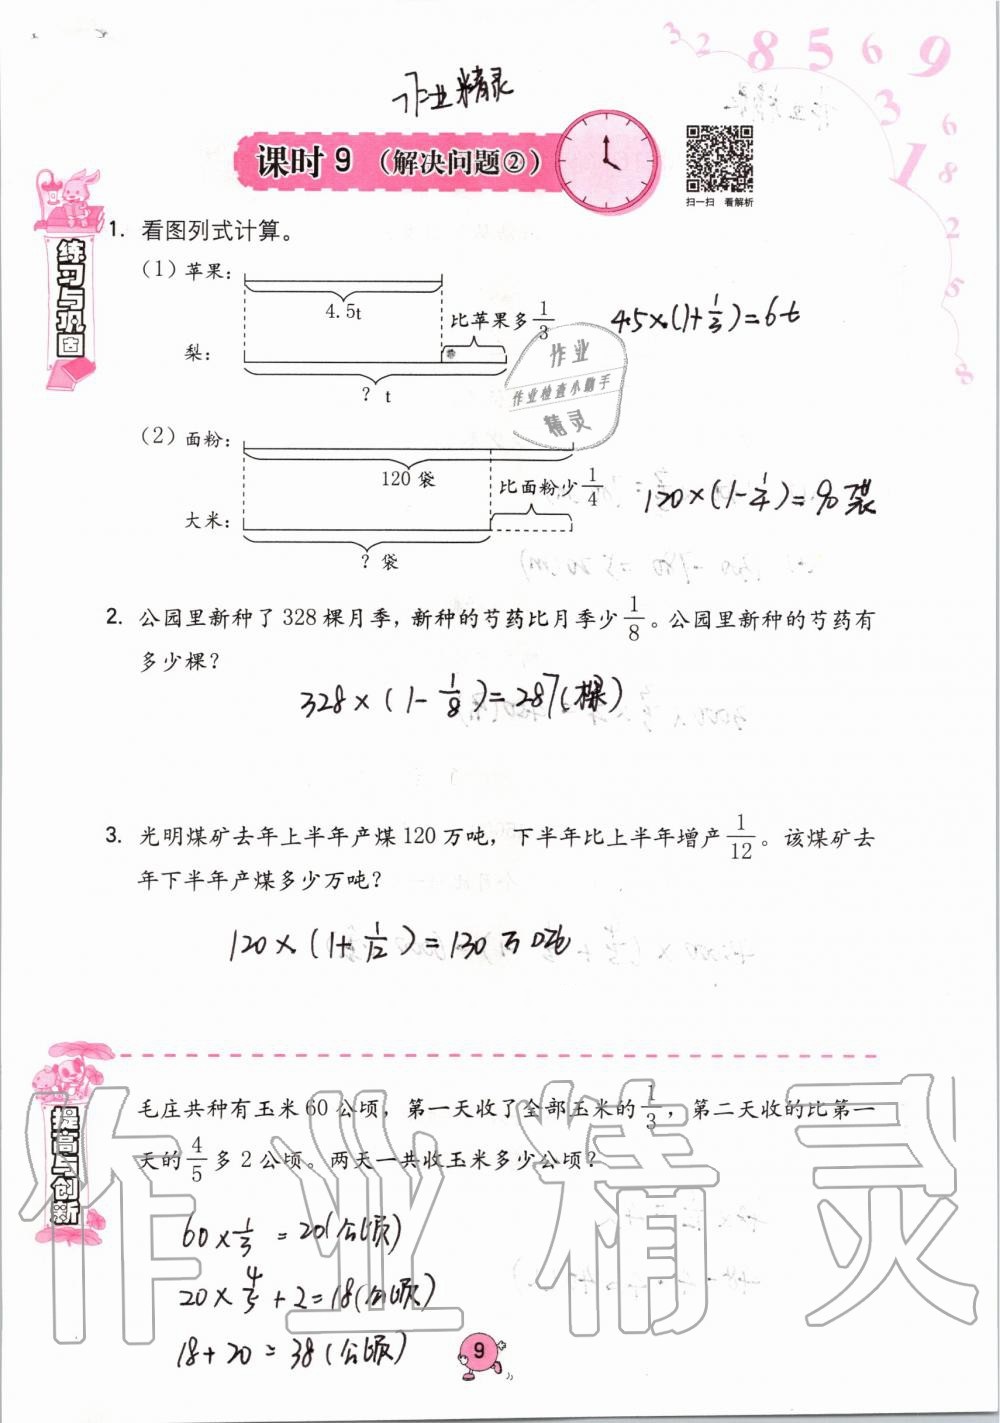 3 2 8 5 6 9
3
1
6
8
2
5
8
作业精灵
课时9（解决问题②）
扫一扫 看解析
练习与巩固
1. 看图列式计算。
（1）苹果：
4.5t
比苹果多1/3
4.5×(1+1/3)=6t
梨：
? t
作业
作业检查小助手
精灵
（2）面粉：
120 袋
比面粉少1/4
120×(1-1/4)=90袋
大米：
? 袋
2. 公园里新种了 328 棵月季，新种的芍药比月季少1/8。公园里新种的芍药有
多少棵？
328×(1-1/8)=287(棵)
3. 光明煤矿去年上半年产煤 120 万吨，下半年比上半年增产1/12。该煤矿去
年下半年产煤多少万吨？
120×(1+1/12)=130万吨
提高与创新
毛庄共种有玉米 60 公顷，第一天收了全部玉米的1/3，第二天收的比第一
天的4/5多 2 公顷。两天一共收玉米多少公顷？
60×1/3=20(公顷)
20×4/5+2=18(公顷)
18+20=38(公顷)
9
作业精灵